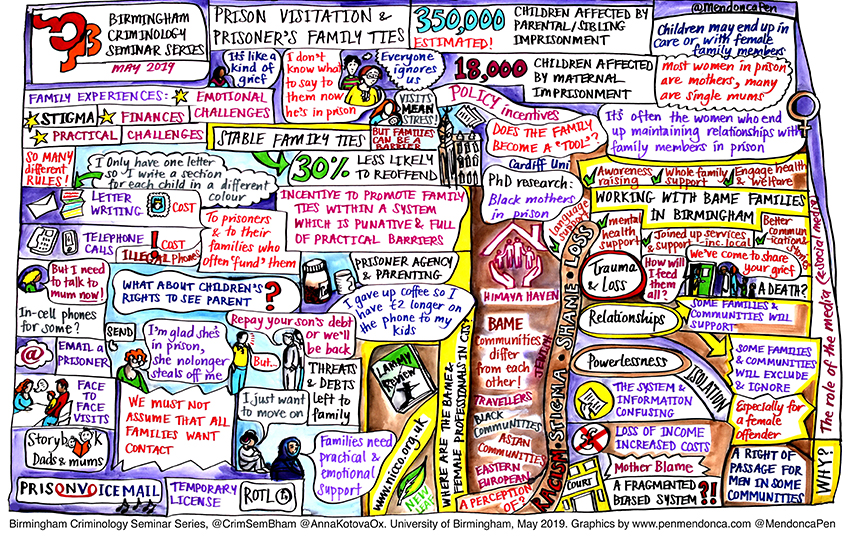 BIRMINGHAM
CRIMINOLOGY
SEMINAR SERIES
MAY 2019
PRISON VISITATION &
PRISONER'S FAMILY TIES
350,000
ESTIMATED!
CHILDREN AFFECTED BY
PARENTAL/SIBLING
IMPRISONMENT
18,000
CHILDREN AFFECTED
BY MATERNAL
IMPRISONMENT
@MendoncaPen
Children may end up in
care or with female
family members
most women in prison
are mothers, many
are single mums
It's often the women who end
up maintaining relationships with
family members in prison
It's like a
kind of
grief
I don't
know what
to say to
them now
he's in prison
Everyone
ignores
us
VISITS
MEAN
STRESS!
FAMILY EXPERIENCES:
EMOTIONAL
CHALLENGES
STIGMA
FINANCES
PRACTICAL
CHALLENGES
STABLE FAMILY TIES
BUT FAMILIES
CAN BE A
BARRIER
30%
LESS LIKELY
TO REOFFEND
SO MANY
different
RULES!
I only have one letter
so I write a section
for each child in a different
colour
LETTER
WRITING
COST
TELEPHONE
CALLS
COST
ILLEGAL phones
To prisoners
& to their
families who
often 'fund' them
INCENTIVE TO PROMOTE FAMILY
TIES WITHIN A SYSTEM
WHICH IS PUNATIVE & FULL
OF PRACTICAL BARRIERS
PRISONER AGENCY
& PARENTING
I gave up coffee so I
have £2 longer on
the phone to my
kids
But I need
to talk to
mum now!
WHAT ABOUT CHILDREN'S
RIGHTS TO SEE PARENT
?
In-cell phones
for some?
SEND
EMAIL A
PRISONER
I'm glad she's
in prison,
she no longer
steals off me
Repay your son's debt
or we'll
be back
But...
THREATS
& DEBTS
left to
family
FACE
TO
FACE
VISITS
WE MUST NOT
ASSUME THAT ALL
FAMILIES WANT
CONTACT
I just want
to move on
Storybook
Dads & mums
Families need
practical &
emotional
support
PRISONVOICEMAIL
TEMPORARY
LICENSE
ROTL
POLICY incentives
DOES THE FAMILY
BECOME A "TOOL"?
Cardiff Uni
PhD research:
Black mothers
in prison
Language
support
HIMAYA HAVEN
BAME
Communities
differ
from each
other!
JEWISH
TRAVELLERS
BLACK
COMMUNITIES
ASIAN
COMMUNITIES
EASTERN
EUROPEAN
A PERCEPTION OF?
LAMMY
Review
www.nicco.org.uk
WHERE ARE THE BAME &
FEMALE PROFESSIONALS IN CJS?
RACISM·STIGMA·SHAME·LOSS
Awareness
raising
Whole family
support
Engage health
& welfare
WORKING WITH BAME FAMILIES
IN BIRMINGHAM
mental
health
support
Joined up services
& support
Better
Trauma
& Loss
How will
I feed
them
all?
We've come to share
your grief
& A DEATH?
Relationships
SOME FAMILIES &
COMMUNITIES WILL
SUPPORT
Powerlessness
ISOLATION
SOME FAMILIES
& COMMUNITIES
WILL EXCLUDE
& IGNORE
THE SYSTEM &
INFORMATION
CONFUSING
Especially for
a female
offender
LOSS OF INCOME
INCREASED COSTS
Mother Blame
COURT
A FRAGMENTED
BIASED SYSTEM
?!
A RIGHT OF
PASSAGE FOR
MEN IN SOME
COMMUNITIES
WHY?
The role of the media (& social media)
Birmingham Criminology Seminar Series, @CrimSemBham @AnnaKotovaOx. University of Birmingham, May 2019. Graphics by www.penmendonca.com @MendoncaPen